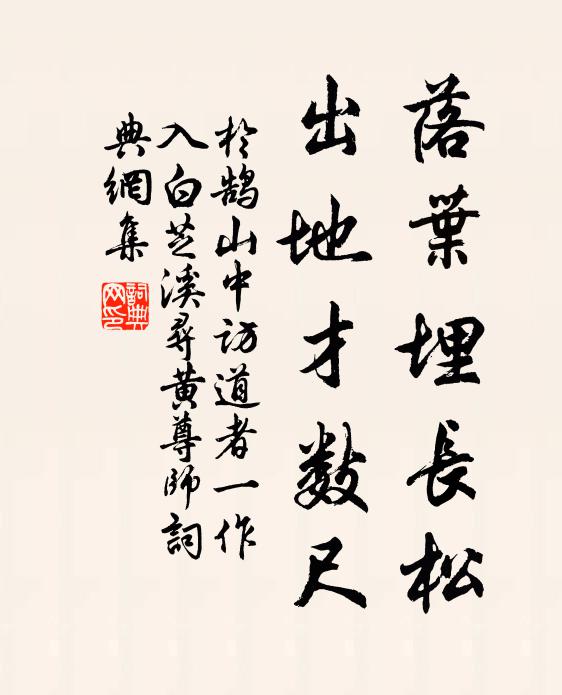 落葉埋長松
出地才數尺
於鵠山中訪道者一作
入白芝溪尋黃尊師詞
典網集
詞典
网印